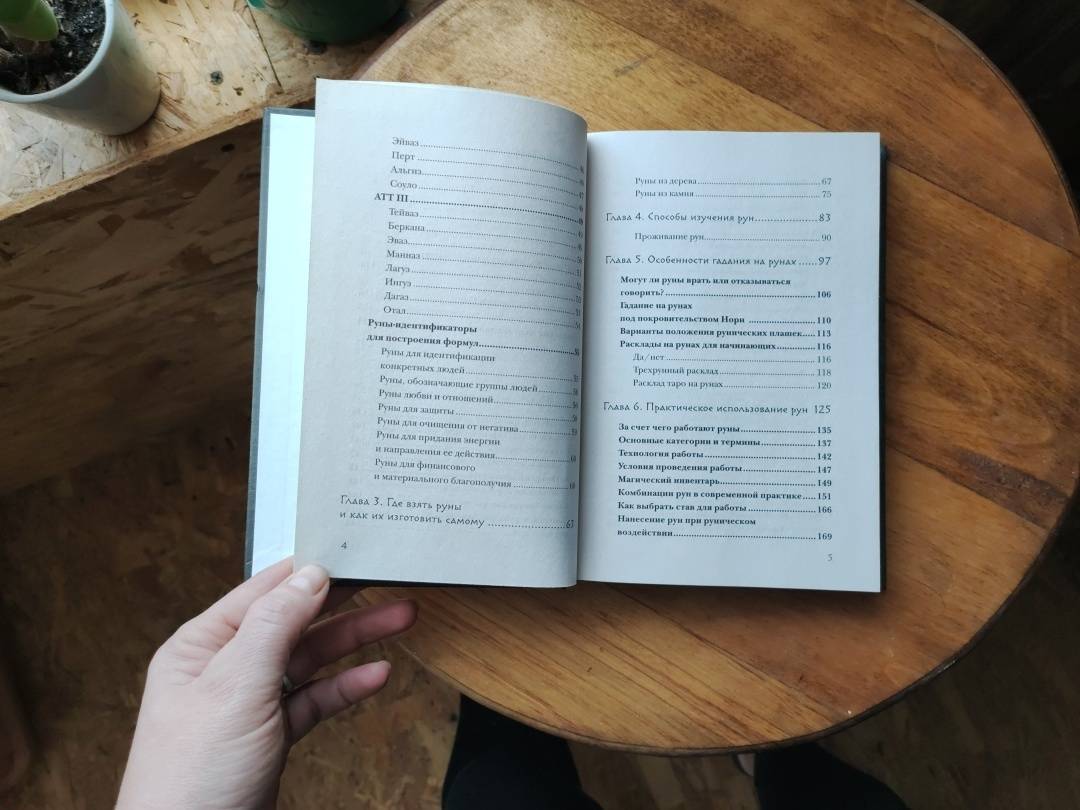 Эйваз
Перт
Альгиз
Соуло
АТТ III
Тейваз
Беркана
Эваз
Манназ
Лагуз
Ингуз
Дагаз
Отал
Руны-идентификаторы
для построения формул
Руны для идентификации
конкретных людей
Руны, обозначающие группы людей
Руны любви и отношений
Руны для защиты
Руны для очищения от негатива
Руны для придания энергии
и направления ее действия
Руны для финансового
и материального благополучия
Глава 3. Где взять руны
и как их изготовить самому ........................ 63
4
Руны из дерева ........................ 67
Руны из камня ........................ 75
Глава 4. Способы изучения рун ............ 83
Проживание рун ........................ 90
Глава 5. Особенности гадания на рунах ...... 97
Могут ли руны врать или отказываться
говорить? ........................ 106
Гадание на рунах
под покровительством Норн ............ 110
Варианты положения рунических плашек ..... 113
Расклады на рунах для начинающих ......... 116
Да/нет ........................ 116
Трехрунный расклад ........................ 118
Расклад таро на рунах ........................ 120
Глава 6. Практическое использование рун 125
За счет чего работают руны ............ 135
Основные категории и термины ............ 137
Технология работы ........................ 142
Условия проведения работы ............ 147
Магический инвентарь ........................ 149
Комбинации рун в современной практике ..... 151
Как выбрать став для работы ............ 166
Нанесение рун при руническом
воздействии ........................ 169
5